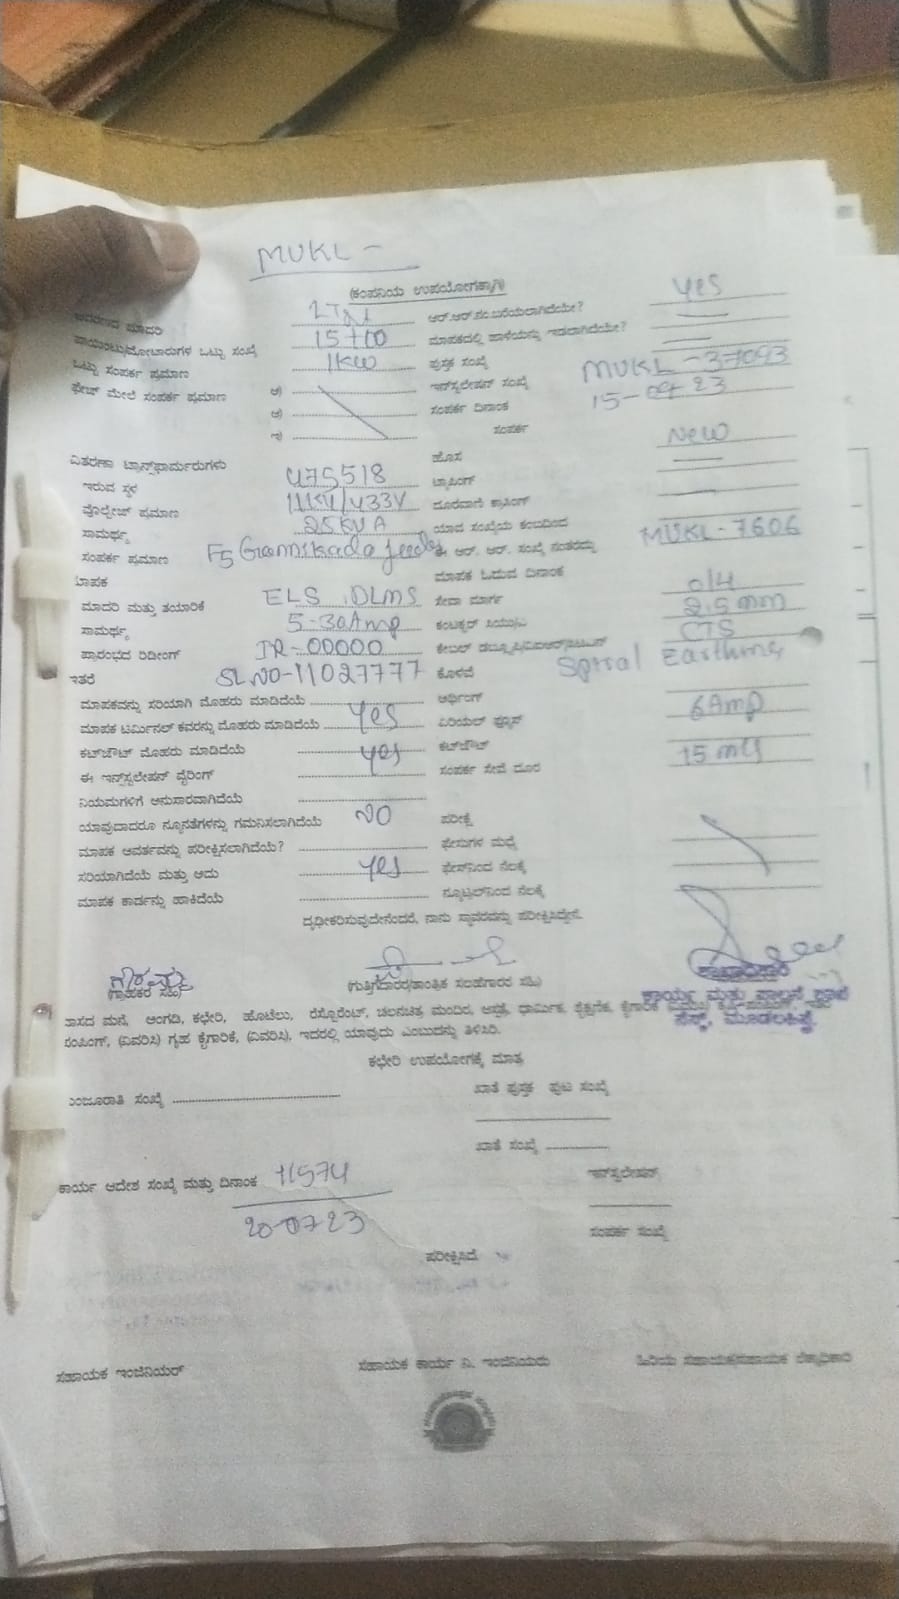 MUKL -
(ಕಂಪನಿಯ ಉಪಯೋಗಕ್ಕಾಗಿ)
ಮಾದರಿ ಆರ್.ಆರ್.ನಂ.ಬರೆಯಲಾಗಿದೆಯೇ? Yes
ಪಾಯಿಂಟು/ಮೋಟಾರುಗಳ ಒಟ್ಟು ಸಂಖ್ಯೆ 15+00 ಮಾಪಕದಲ್ಲಿ ಹಾಳೆಯನ್ನು ಇಡಲಾಗಿದೆಯೇ?
ಒಟ್ಟು ಸಂಪರ್ಕ ಪ್ರಮಾಣ 1KW ಪುಸ್ತಕ ಸಂಖ್ಯೆ
ಫೇಜ್ ಮೇಲೆ ಸಂಪರ್ಕ ಪ್ರಮಾಣ ಇನ್‌ಸ್ಟಲೇಷನ್ ಸಂಖ್ಯೆ MUKL-37093
ಸಂಪರ್ಕ ದಿನಾಂಕ
ಸಂಪರ್ಕ
ವಿತರಣಾ ಟ್ರಾನ್ಸ್‌ಫಾರ್ಮರುಗಳು ಹೊಸ New
ಇರುವ ಸ್ಥಳ 475518 ಟ್ಯಾಪಿಂಗ್
ವೋಲ್ಟೇಜ್ ಪ್ರಮಾಣ 11KV/433V ದೂರವಾಣಿ ಕ್ರಾಸಿಂಗ್
ಸಾಮರ್ಥ್ಯ 25KVA ಯಾವ ಸಂಖ್ಯೆಯ ಕಂಬದಿಂದ
ಸಂಪರ್ಕ ಪ್ರಮಾಣ F5 ಈ ಆರ್. ಆರ್. ಸಂಖ್ಯೆ ನಂತರದ್ದು MUKL-7606
ಮಾಪಕ ಮಾಪಕ ಓದುವ ದಿನಾಂಕ
ಮಾದರಿ ಮತ್ತು ತಯಾರಿಕೆ ELS DLMS ಸೇವಾ ಮಾರ್ಗ O/H
ಸಾಮರ್ಥ್ಯ 5-30Amp 2.5mm
ಪ್ರಾರಂಭದ ರಿಡಿಂಗ್ IR-00000 CTS
ಇತರೆ SL NO-11027777 ಕೊಳವೆ Spiral Earthing
ಮಾಪಕವನ್ನು ಸರಿಯಾಗಿ ಮೊಹರು ಮಾಡಿದೆಯೆ ಅರ್ಥಿಂಗ್
ಮಾಪಕ ಟರ್ಮಿನಲ್ ಕವರನ್ನು ಮೊಹರು ಮಾಡಿದೆಯೆ Yes ಏರಿಯಲ್ ಫ್ಯೂಸ್ 6Amp
ಕಟ್‌ಔಟ್ ಮೊಹರು ಮಾಡಿದೆಯೆ Yes ಕಟ್‌ಔಟ್
ಈ ಇನ್‌ಸ್ಟಲೇಷನ್ ವೈರಿಂಗ್ ಸಂಪರ್ಕ ಸೇವೆ ದೂರ
ನಿಯಮಗಳಿಗೆ ಅನುಸಾರವಾಗಿದೆಯೆ
ಯಾವುದಾದರೂ ನ್ಯೂನತೆಗಳನ್ನು ಗಮನಿಸಲಾಗಿದೆಯೆ NO ಪರೀಕ್ಷೆ
ಮಾಪಕ ಆವರ್ತವನ್ನು ಪರೀಕ್ಷಿಸಲಾಗಿದೆಯೆ? ಫೇಸುಗಳ ಮಧ್ಯೆ
ಸರಿಯಾಗಿದೆಯೆ ಮತ್ತು ಅದು Yes ಫೇಸ್‌ನಿಂದ ನೆಲಕ್ಕೆ
ಮಾಪಕ ಕಾರ್ಡನ್ನು ಹಾಕಿದೆಯೆ ನ್ಯೂಟ್ರಲ್‌ನಿಂದ ನೆಲಕ್ಕೆ
ದೃಢೀಕರಿಸುವುದೇನೆಂದರೆ, ನಾನು ಸ್ಥಾವರವನ್ನು ಪರೀಕ್ಷಿಸಿದ್ದೇನೆ.
(ಗ್ರಾಹಕರ ಸಹಿ) (ಗುತ್ತಿಗೆದಾರರ/ತಾಂತ್ರಿಕ ಸಲಹೆಗಾರರ ಸಹಿ) ಶಾಖಾಧಿಕಾರಿ
ಕಾರ್ಯ ಮತ್ತು ಪಾಲನೆ ಶಾಖೆ
ವಾಸದ ಮನೆ, ಅಂಗಡಿ, ಕಛೇರಿ, ಹೊಟೆಲು, ರೆಸ್ಟೋರೆಂಟ್, ಚಲನಚಿತ್ರ ಮಂದಿರ, ಆಸ್ಪತ್ರೆ, ಧಾರ್ಮಿಕ, ಶೈಕ್ಷಣಿಕ, ಕೈಗಾರಿಕೆ
ಪಂಪಿಂಗ್, (ವಿವರಿಸಿ) ಗೃಹ ಕೈಗಾರಿಕೆ, (ವಿವರಿಸಿ), ಇದರಲ್ಲಿ ಯಾವುದು ಎಂಬುದನ್ನು ತಿಳಿಸಿರಿ.
ಕಛೇರಿ ಉಪಯೋಗಕ್ಕೆ ಮಾತ್ರ
ಮಂಜೂರಾತಿ ಸಂಖ್ಯೆ ಖಾತೆ ಪುಸ್ತಕ ಪುಟ ಸಂಖ್ಯೆ
ಖಾತೆ ಸಂಖ್ಯೆ
ಕಾರ್ಯ ಆದೇಶ ಸಂಖ್ಯೆ ಮತ್ತು ದಿನಾಂಕ 11574 ಇನ್‌ಸ್ಟಲೇಷನ್
20-07-23 ಸಂಪರ್ಕ ಸಂಖ್ಯೆ
ಪರೀಕ್ಷಿಸಿದೆ
ಸಹಾಯಕ ಇಂಜಿನಿಯರ್ ಸಹಾಯಕ ಕಾರ್ಯ ನಿ. ಇಂಜಿನಿಯರು ಹಿರಿಯ ಸಹಾಯಕ/ಸಹಾಯಕ ಲೆಕ್ಕಾಧಿಕಾರಿ